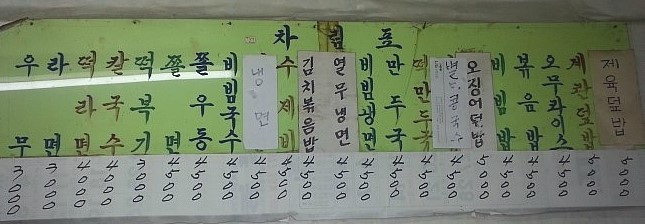 차림표
우무 3000
라면 3000
떡라면 4000
칼국수 4000
떡복기 3000
쫄면 4500
쫄우동 4500
비빔국수 4500
냉면
수제비
김치볶음밥
열무냉면
비빔냉면
만두국
떡만두국
콩국수
오징어덮밥
비빔밥
볶음밥
오무라이스
계란덮밥
제육덮밥